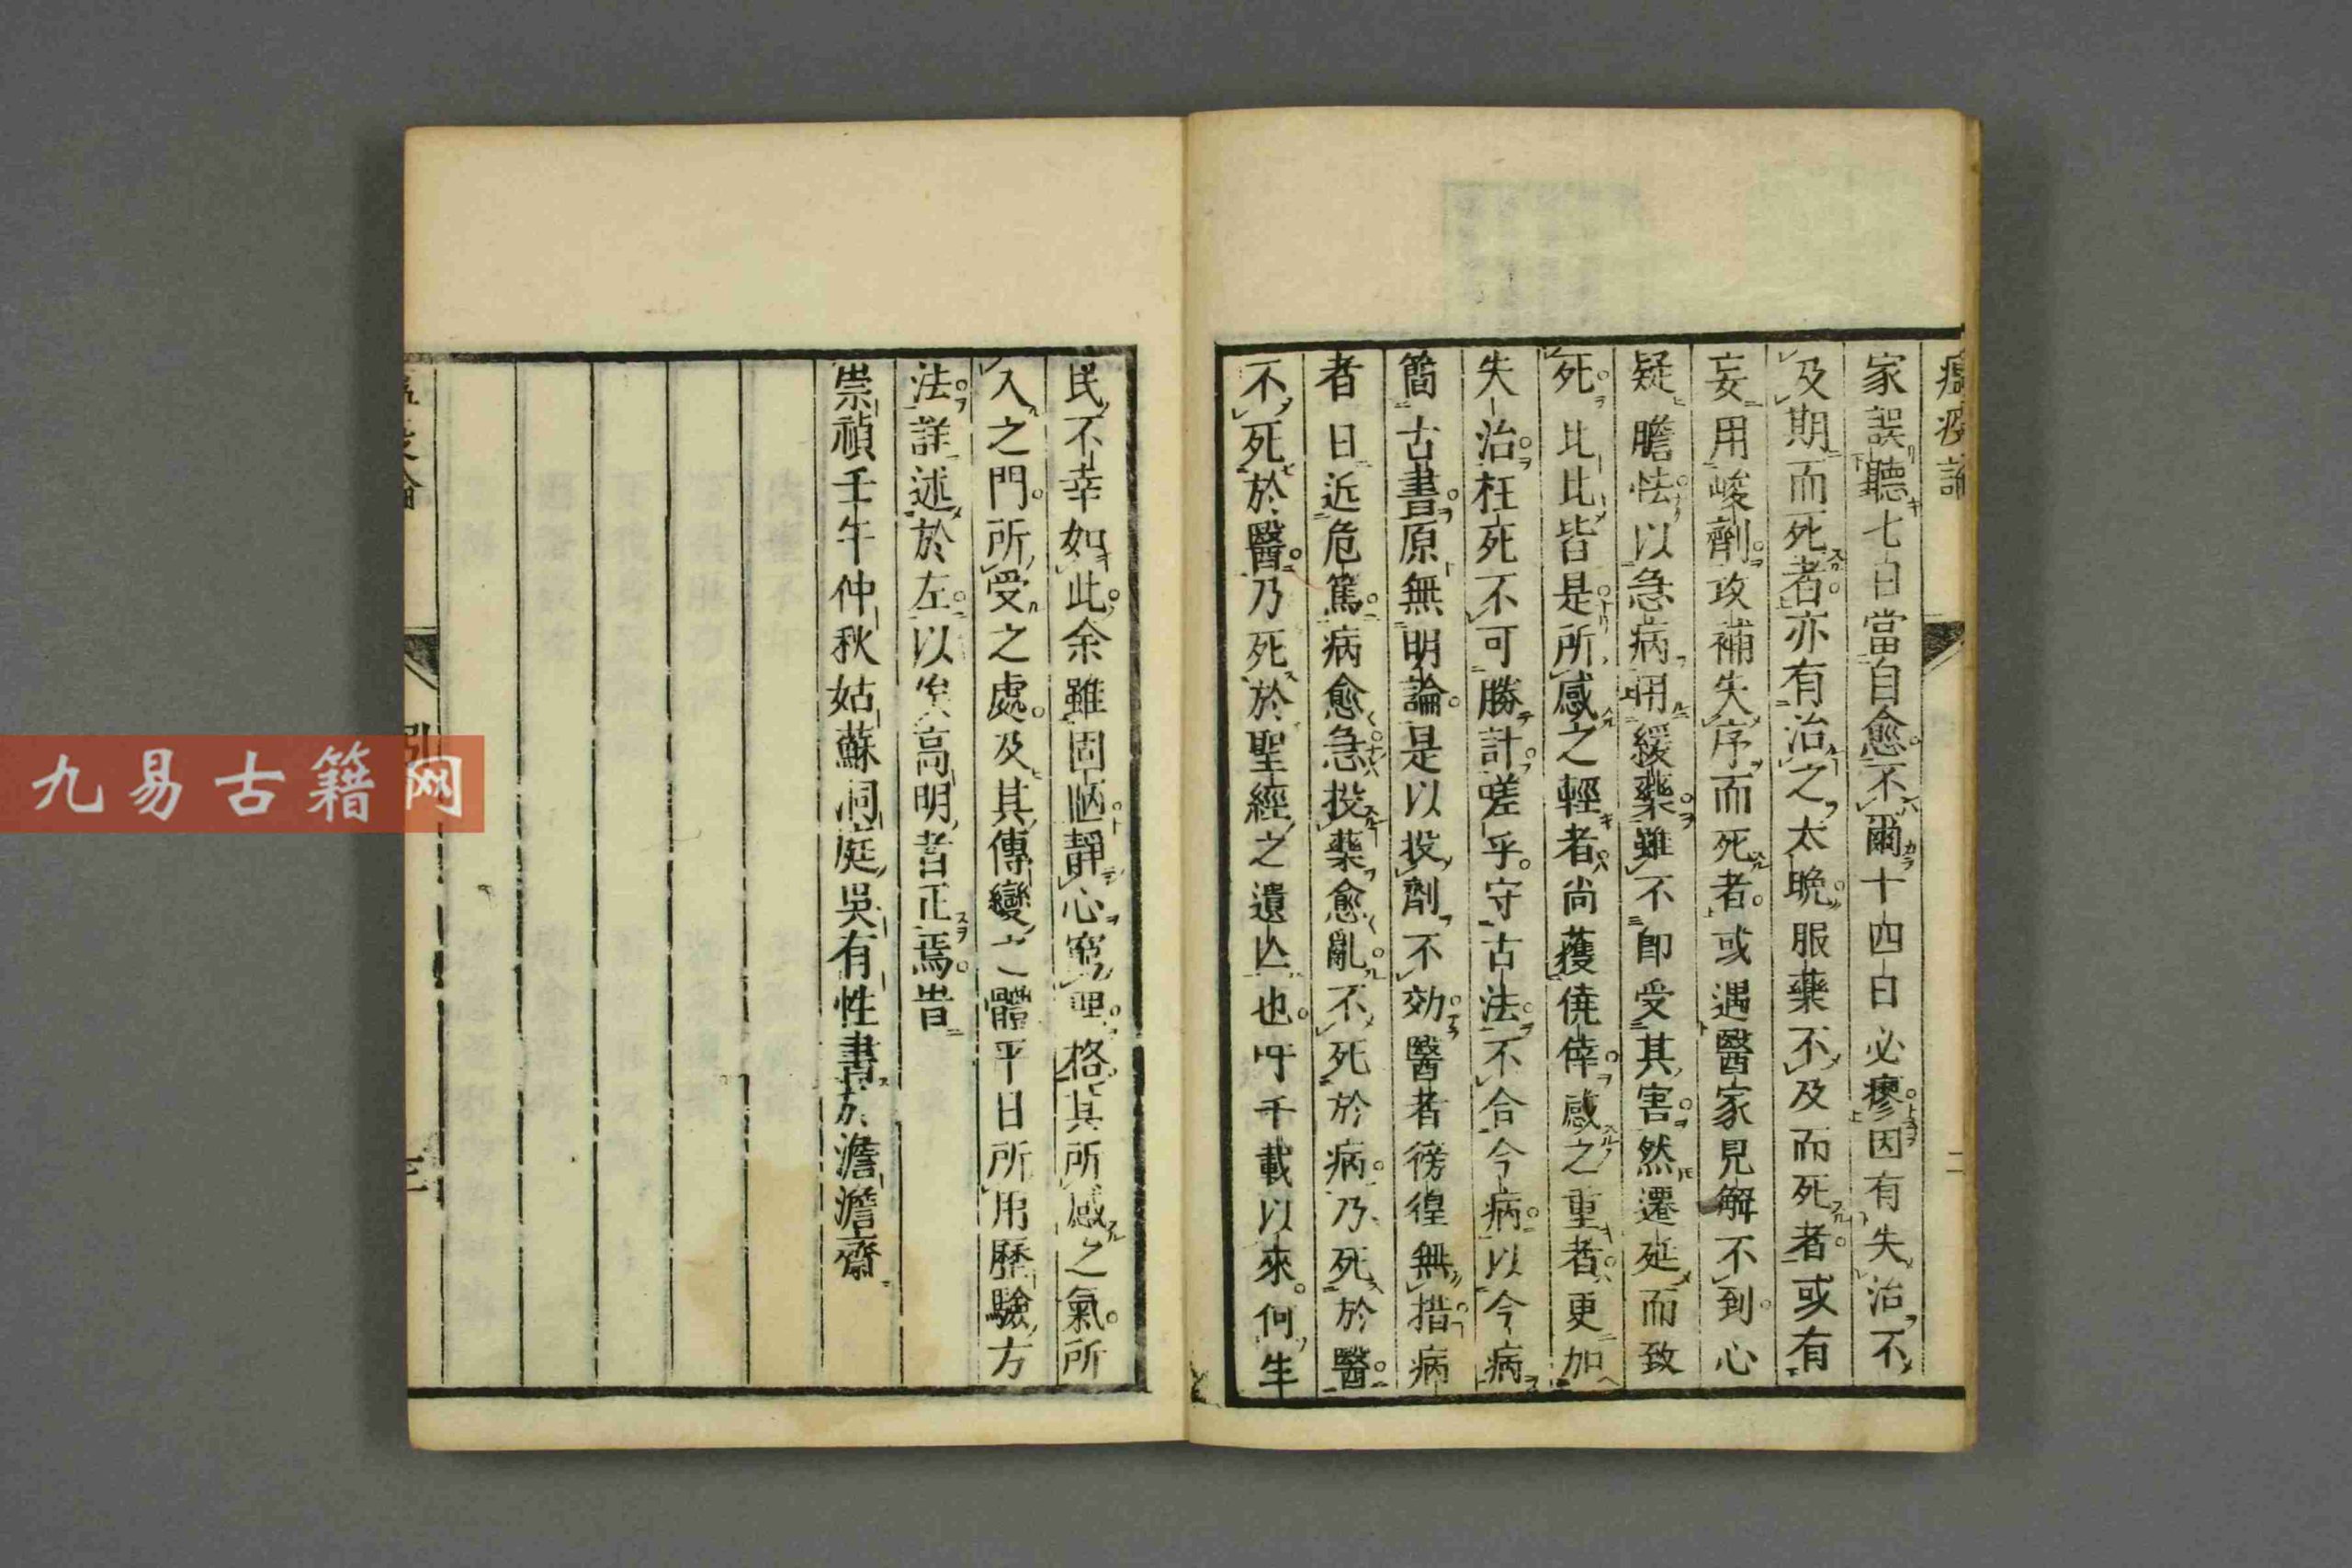 瘟疫論
二
家誤聽七日當自愈不爾十四日必瘳因有失治不
及期而死者亦有治之太晩服藥不及而死者或有
妄用峻劑攻補失序而死者或遇醫家見解不到心
疑膽怯以急病用緩藥雖不卽受其害然遷延而致
死比比皆是所感之輕者尚獲僥倖感之重者更加
失治枉死不可勝計嗟乎守古法不合今病以今病
簡古書原無明論是以投劑不効醫者徬徨無措病
者日近危篤病愈急投藥愈亂不死於病乃死於醫
不死於醫乃死於聖經之遺亾也吁千載以來何生
民不幸如此余雖固陋靜心窮理格其所感之氣所
入之門所受之處及其傳變之體平日所用歷驗方
法詳述於左以俟高明者正焉旹
崇禎壬午仲秋姑蘇洞庭吳有性書於澹澹齋
九易古籍网